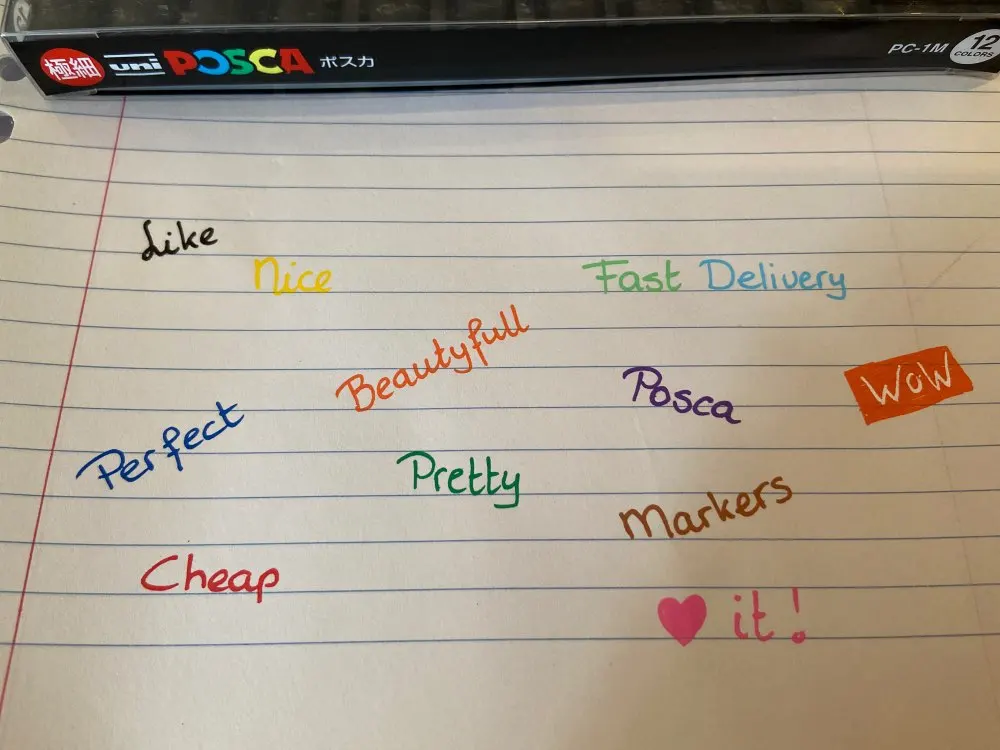 極細 uni POSCA ポスカ PC-1M 12 COLORS
Like
Nice
Fast Delivery
Beautyfull
Posca
WoW
Perfect
Pretty
Markers
Cheap
♥ it!